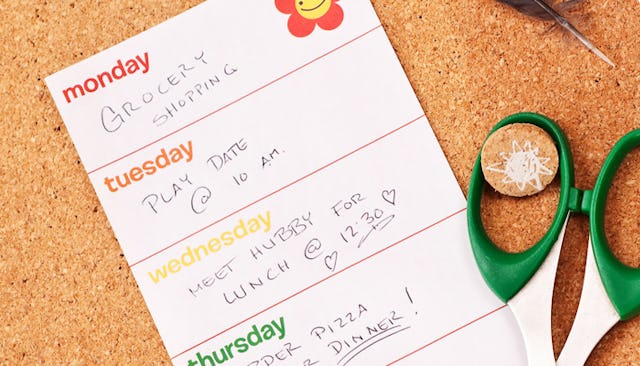 monday
GROCERY
SHOPPING
tuesday
PLAY DATE
@ 10 AM.
wednesday
MEET HUBBY FOR
LUNCH @ 12:30
thursday
PIZZA
DINNER!